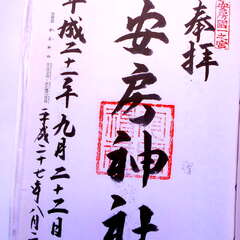 奉拝
安房國一之宮
安房神社
平成二十一年九月二十二日
平成二十七年八月二